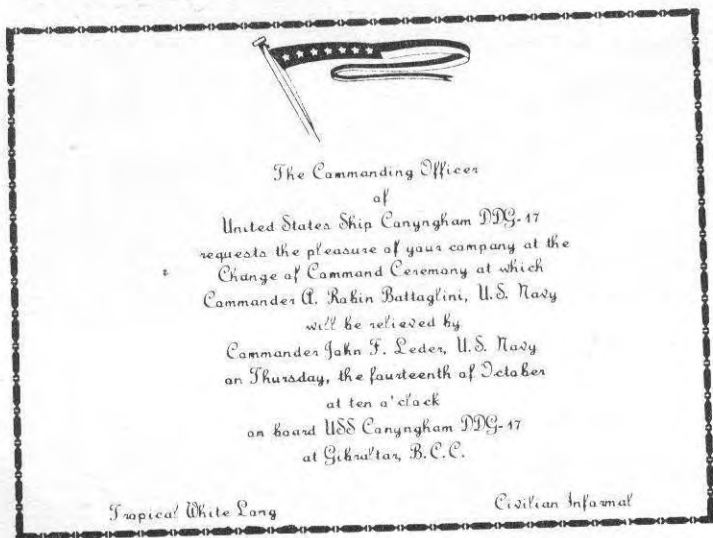 The Commanding Officer
of
United States Ship Conyngham DDG-17
requests the pleasure of your company at the
Change of Command Ceremony at which
Commander A. Robin Battaglini, U.S. Navy
will be relieved by
Commander John F. Leder, U.S. Navy
on Thursday, the fourteenth of October
at ten o'clock
on board USS Conyngham DDG-17
at Gibraltar, B.C.C.
Tropical White Long
Civilian Informal